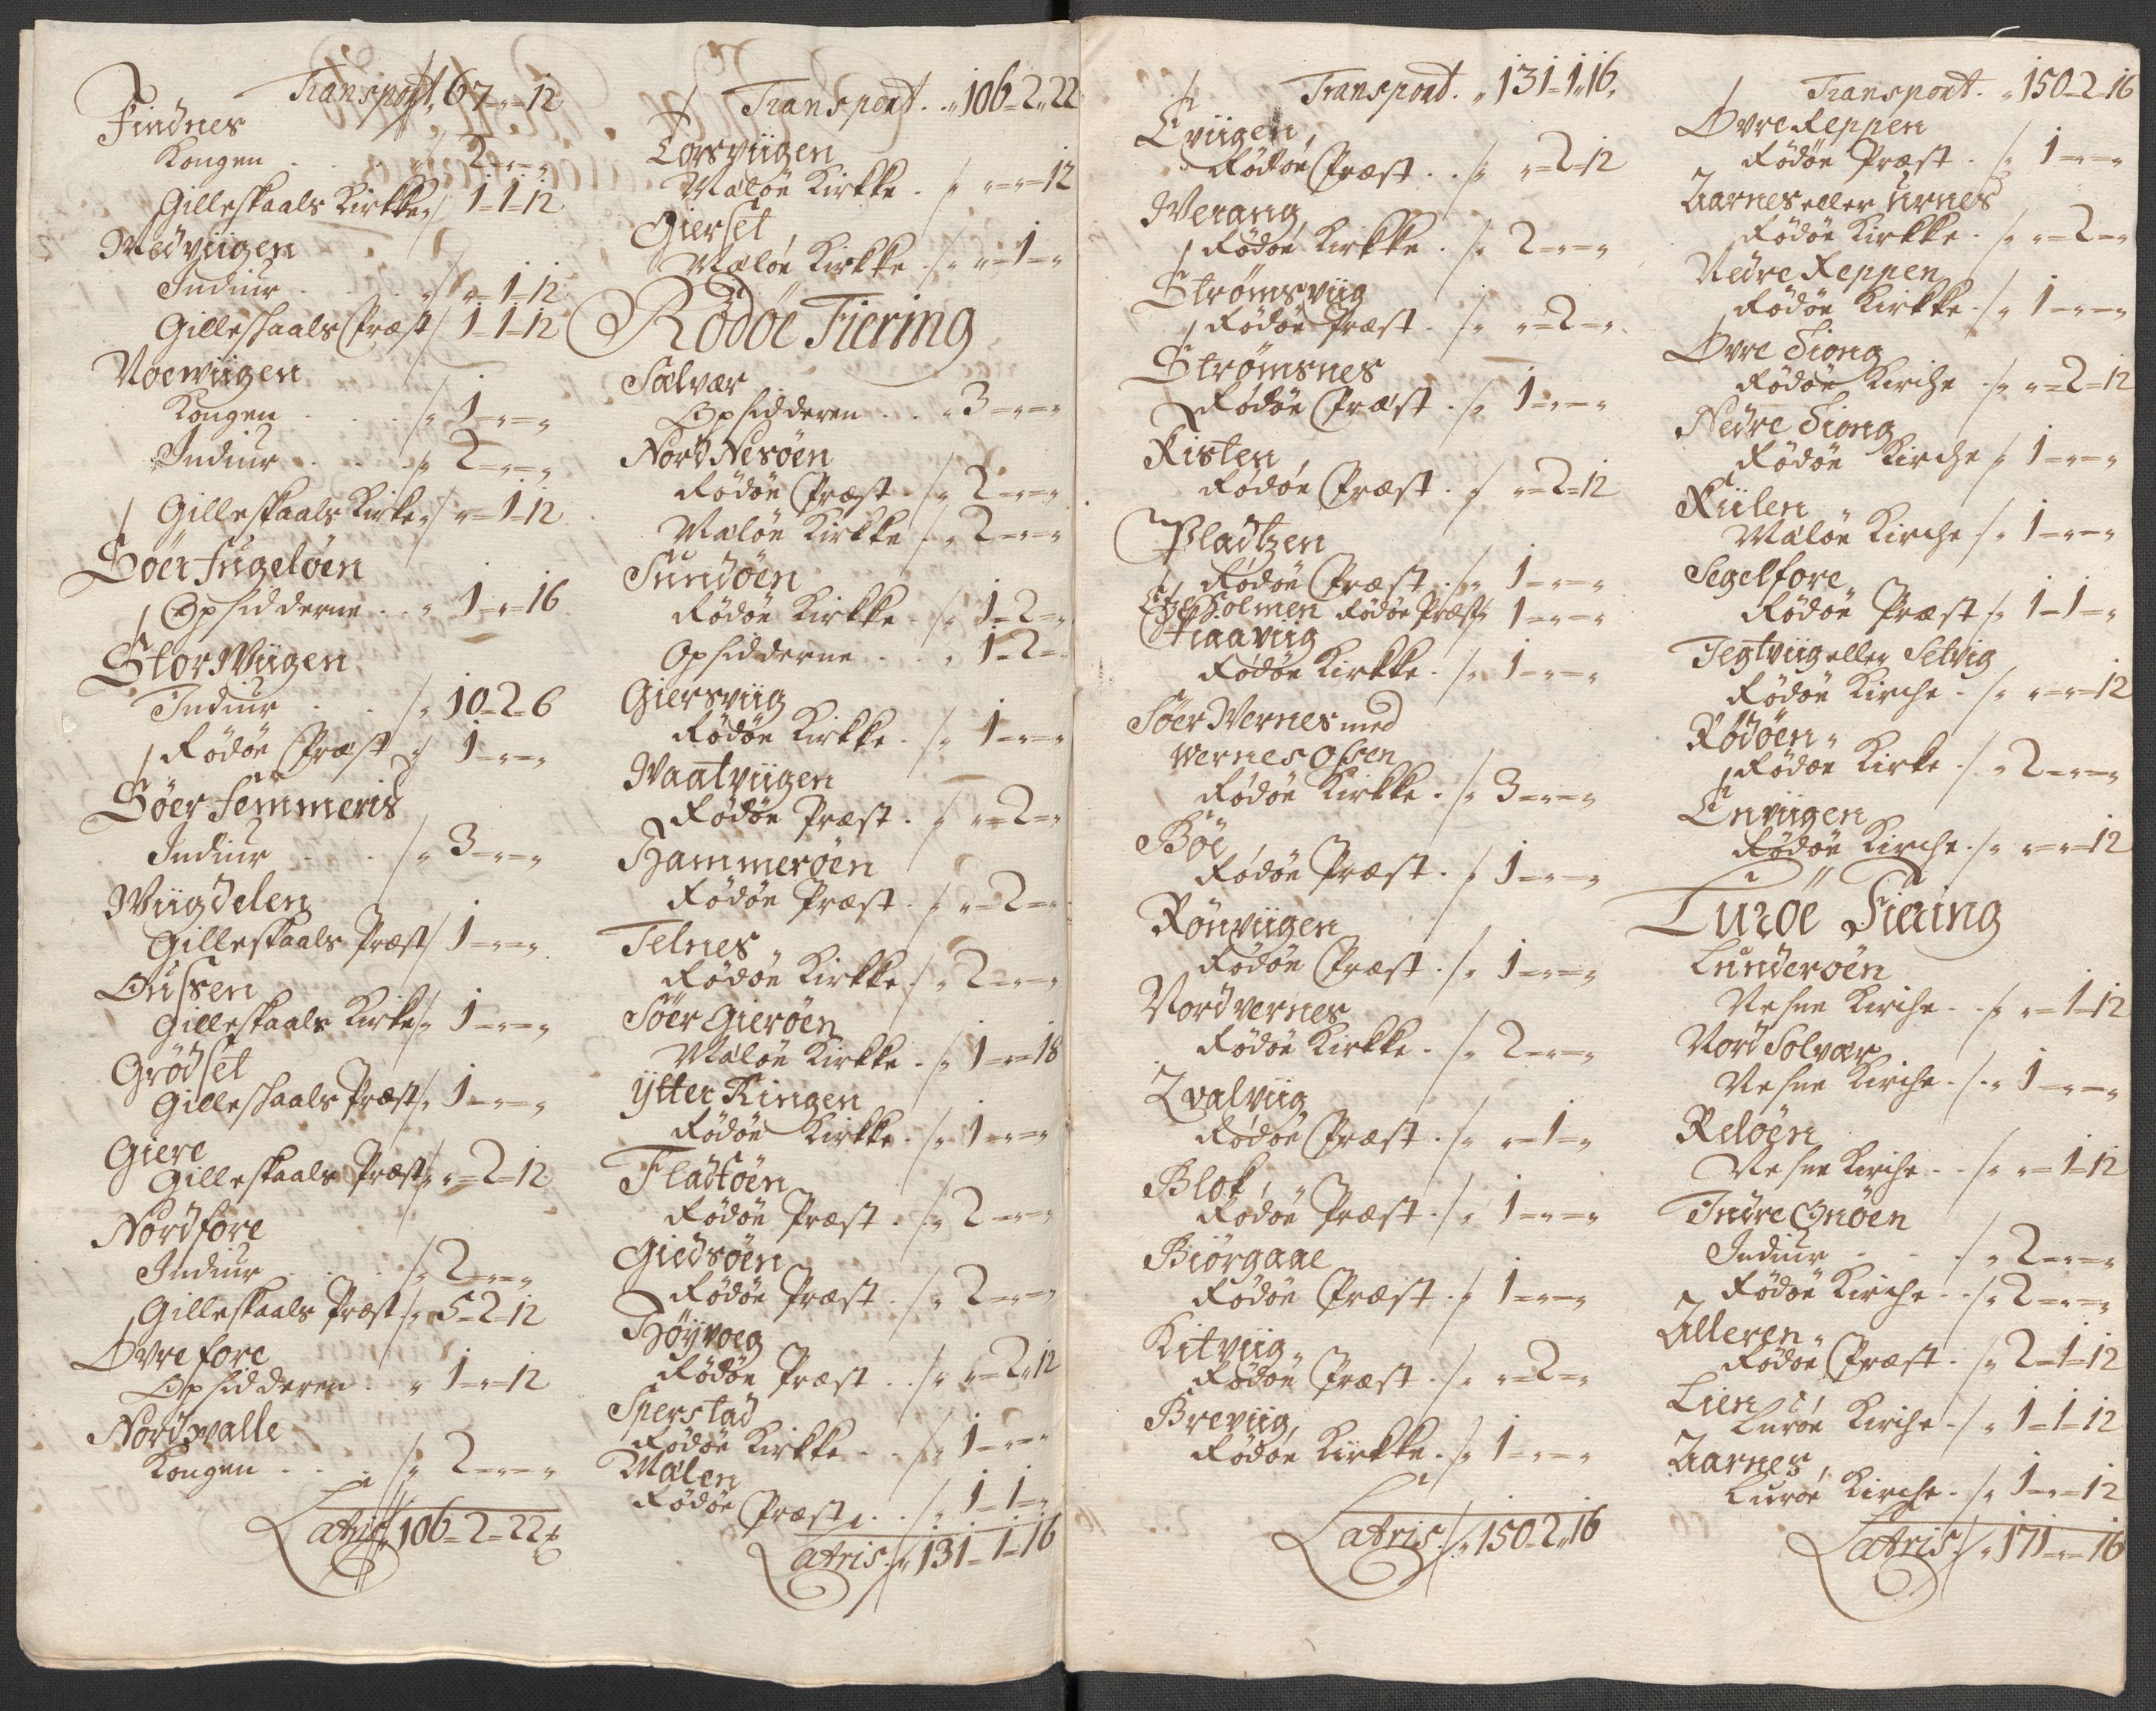 Transport, 67 - " - 12
Findnes
Kongen . . . " 2 - " - "
Gilleskaals Kirkke " 1 - 1 - 12
Medviigen
Indiur . . . " " - 1 - 12
Gilleskaals Præst 1 - 1 - 12
Noerviigen
Kongen . . . " 1 - " - "
Indiur . . . " 2 - " - "
Gilleskaals Kirke " " - 1 - 12
Söer Fugelöen
Opsidderne . . " 1 - " - 16
Stor Wiigen
Indiur . . . " 10 - 2 - 6
Rödöe Præst " 1 - " - "
Söer Femmeris
Indiur . . . " 3 - " - "
Wiigdelen
Gilleskaals Præst 1 - " - "
Oussen
Gilleskaals Kirke " 1 - " - "
Grödset
Gilleskaals Præst " 1 - " - "
Giere
Gilleskaals Præst " " - 2 - 12
Nordfore
Indiur . . . " 2 - " - "
Gilleskaals Præst " 5 - 2 - 12
Øvre fore
Opsidderen . . " 1 - " - 12
Nordwalle
Kongen . . . " 2 - " - "
Latris " 106 - 2 - 22
Transport . . " 106 - 2 - 22
Torsviigen
Maløe Kirkke . " " - " - 12
Gierset
Meløe Kirkke . " " - 1 - "
Rödöe Fiering
Sælvær
Opsidderen . . " 3 - " - "
Nord Nesöen
Rödöe Præst . " 2 - " - "
Maløe Kirkke . " 2 - " - "
Sundöen
Rödöe Kirkke . " 1 - 2 - "
Opsidderne . . " 1 - 2 - "
Giersviig
Rödöe Kirkke . " 1 - " - "
Waatviigen
Rödöe Præst . " " - 2 - "
Hammeröen
Rödöe Præst . " " - 2 - "
Telnes
Rödöe Kirkke . " 2 - " - "
Söer Gieröen
Maløe Kirkke . " 1 - " - 18
Ytter Ringen
Rödöe Kirkke . " 1 - " - "
Fladtöen
Rödöe Præst . " 2 - " - "
Giedsöen
Rödöe Præst . " 2 - " - "
Höyvoeg
Rödöe Præst . . " " - 2 - 12
Sperstad
Rödöe Kirkke . . " 1 - " - "
Mælen
Rödöe Præst . . " 1 - 1 - "
Latris . " 131 - 1 - 16
Transport . " 131 - 1 - 16
Eviigen
Rödöe Præst . . " " - 2 - 12
Werang
Rödöe Kirkke . " 2 - " - "
Strömsviig
Rödöe Præst . " " - 2 - "
Strömsnes
Rödöe Præst . " 1 - " - "
Kisten
Rödöe Præst . " " - 2 - 12
Pladtzen
Rödöe Præst . " 1 - " - "
Holmen Rödöe Præst " 1 - " - "
Rödöe Kirkke . " 1 - " - "
Söer Wernes med
Wernes Ossen
Rödöe Kirkke . " 3 - " - "
Böe
Rödöe Præst . " 1 - " - "
Rönviigen
Rödöe Præst . " 1 - " - "
Nordvernes
Rödöe Kirkke . " 2 - " - "
Qvalviig
Rödöe Præst . " " - 1 - "
Blok
Rödöe Præst . " 1 - " - "
Biörgaae
Rödöe Præst . " 1 - " - "
Kitviig
Rödöe Præst . " " - 2 - "
Breviig
Rödöe Kirkke . " 1 - " - "
Latris . " 150 - 2 - 16
Transport . " 150 - 2 - 16
Øvre Reppen
Rödöe Præst . " 1 - " - "
Aarnes eller Urnes
Rödöe Kirkke . " " - 2 - "
Nedre Reppen
Rödöe Kirkke . " 1 - " - "
Øvre Siong
Rödöe Kirche . " " - 2 - 12
Nedre Siong
Rödöe Kirche " 1 - " - "
Kiilen
Maløe Kirche " 1 - " - "
Segelfore
Rödöe Præst " 1 - 1 - "
Tegtviig eller Setvig
Rödöe Kirche . " " - " - 12
Rödöen
Rödöe Kirke . " 2 - " - "
Enviigen
Rödöe Kirche . " " - " - 12
Luröe Fiering
Lunderöen
Nesne Kirche . . " " - 1 - 12
Nord Solvær
Nesne Kirche . " 1 - " - "
Relöen
Nesne Kirche . . " " - 1 - 12
Indre Qnöen
Indiur . . . " 2 - " - "
Rödöe Kirche . . " 2 - " - "
Alleren
Rödöe Præst . " 2 - 1 - 12
Lien
Luröe Kirche . " 1 - 1 - 12
Aarnes
Luröe Kirche . " 1 - " - 12
Latris . " 171 - " - 16